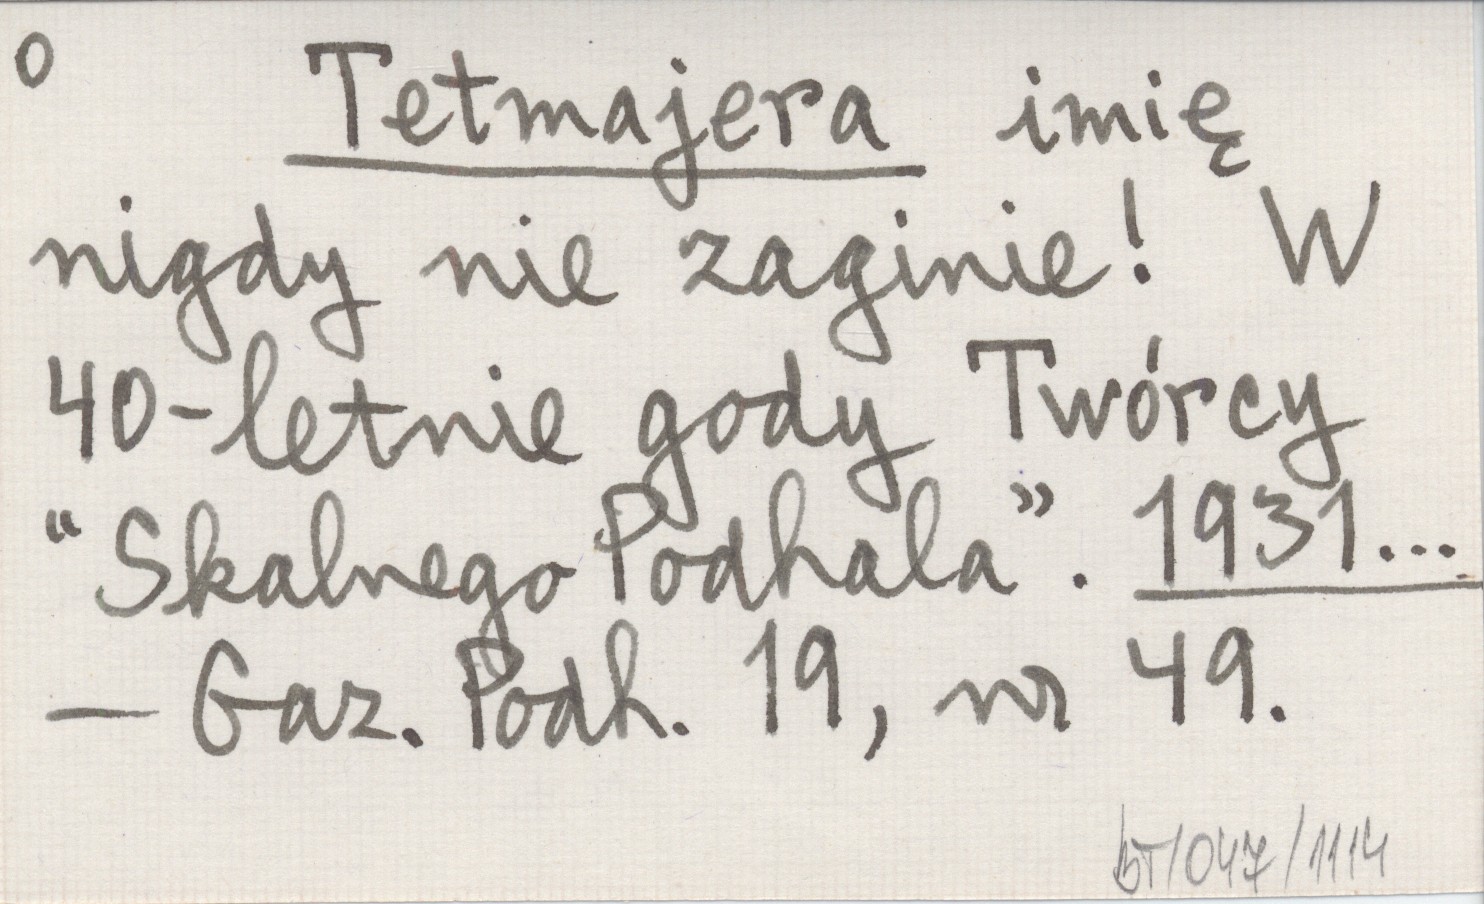 0 Tetmajera imię
nigdy nie zaginie! W
40-letnie gody Twórcy
“Skalnego Podhala”. 1931...
— Gaz. Podh. 19, nr 49.
bT/047/1114